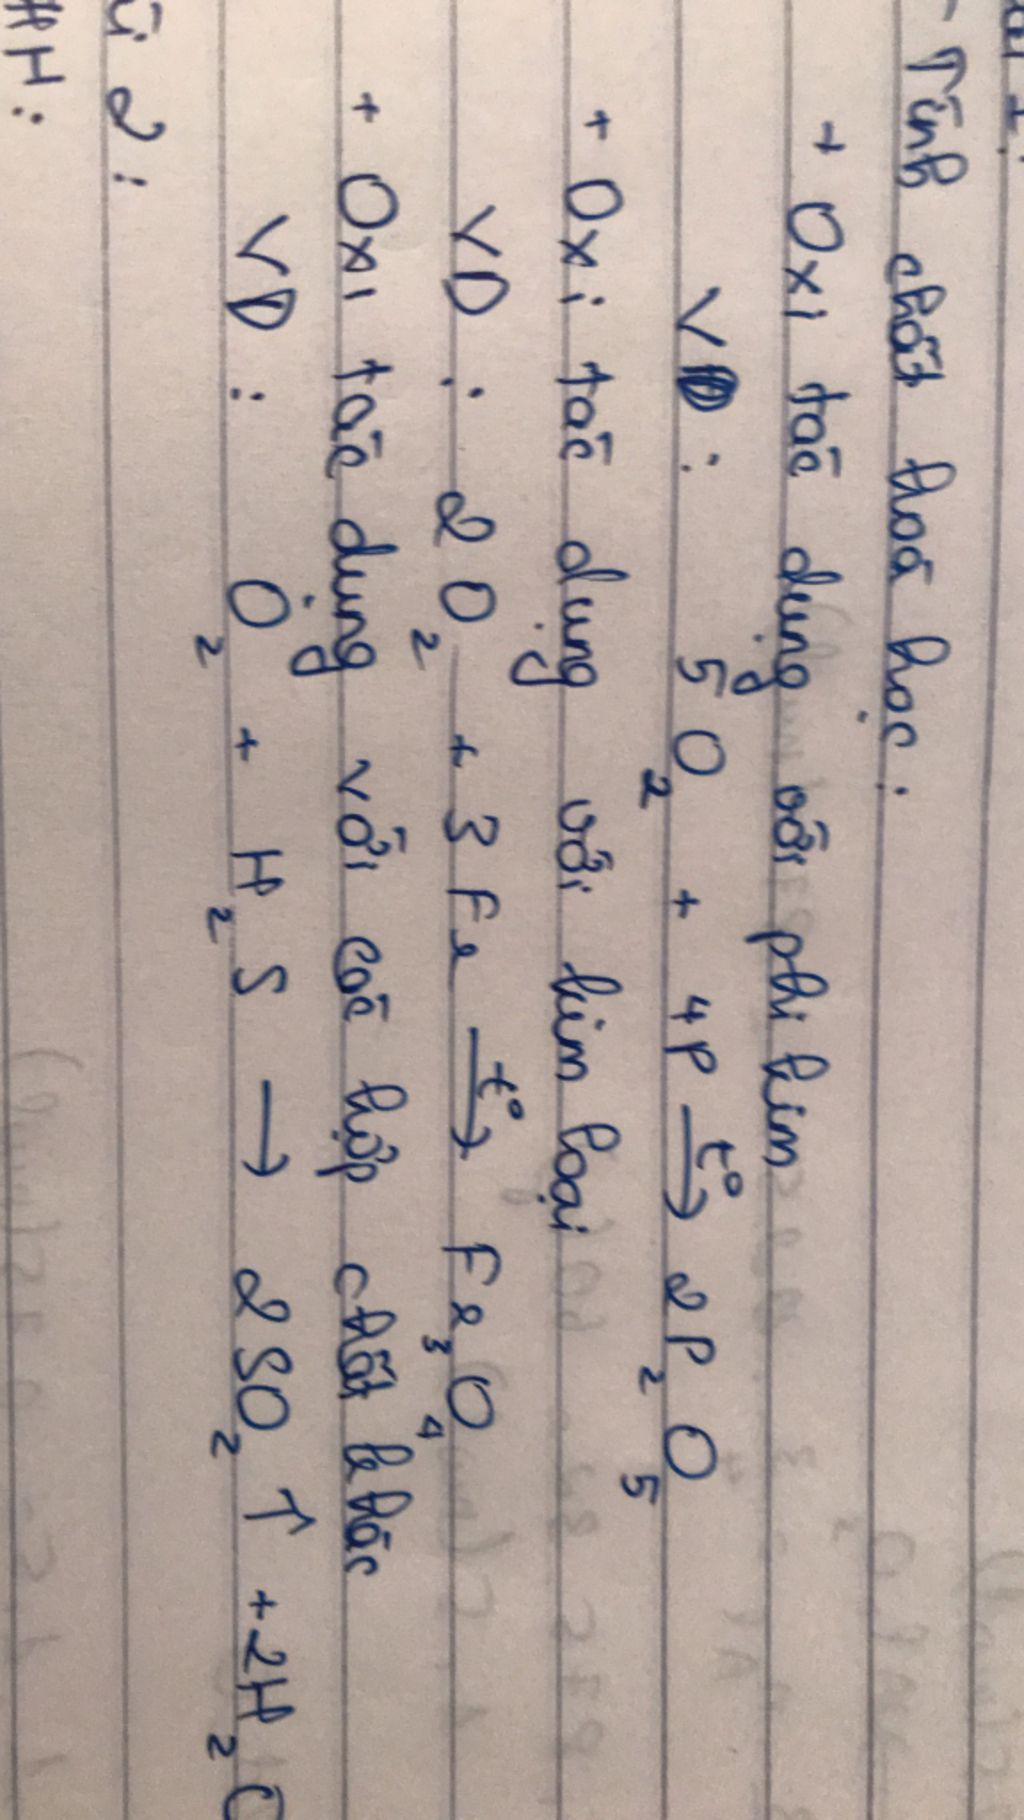 - Tính chất hoá học:
+ Oxi tác dụng với phi kim
VD: 5O₂ + 4P →t° 2P₂O₅
+ Oxi tác dụng với kim loại
VD: 2O₂ + 3Fe →t° Fe₃O₄
+ Oxi tác dụng với các hợp chất khác
VD: O₂ + H₂S → 2SO₂↑ + 2H₂O
2:
H: